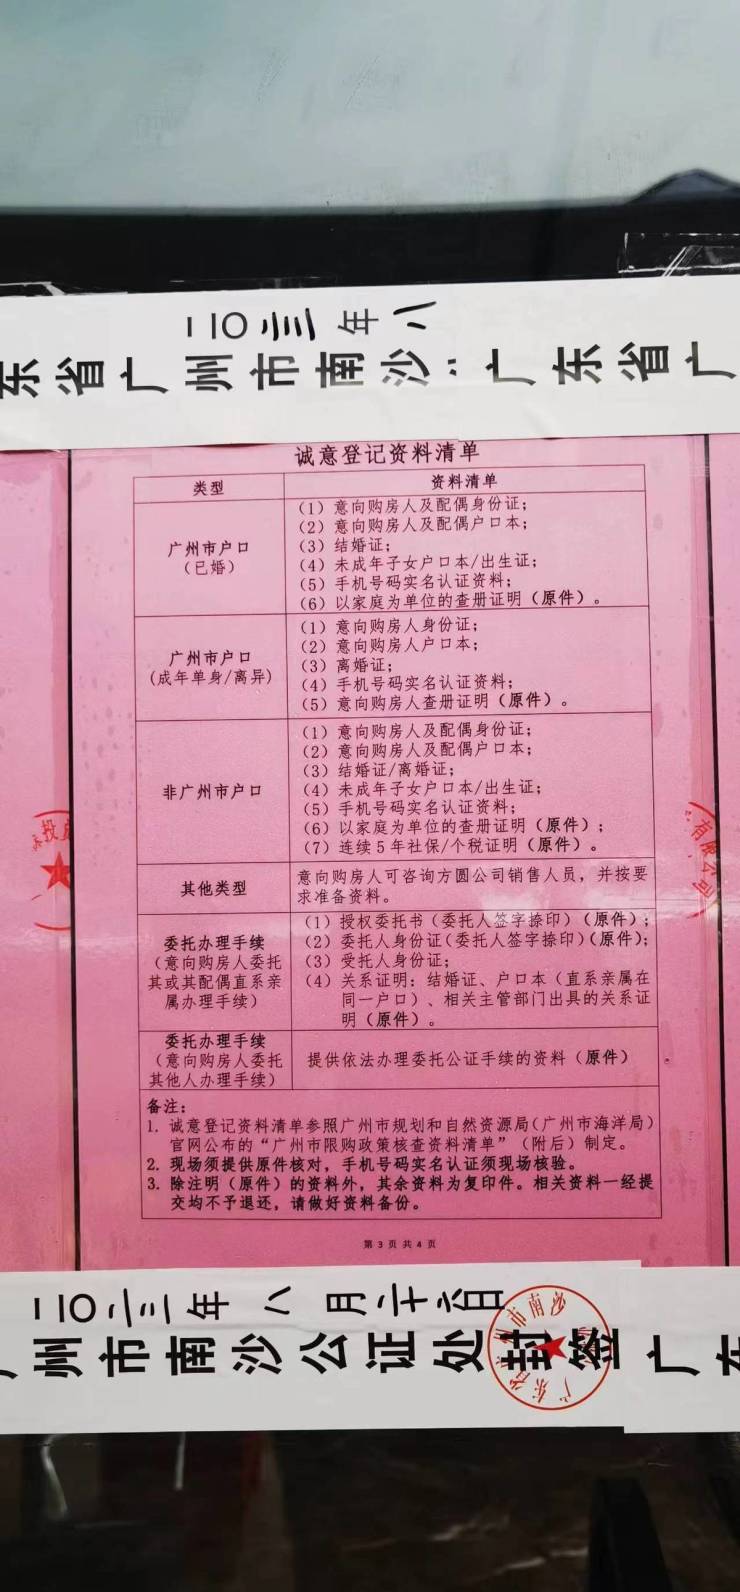 二〇二三年八
东省广州市南沙 广东省广
诚意登记资料清单
类型
资料清单
广州市户口
(已婚)
(1) 意向购房人及配偶身份证;
(2) 意向购房人及配偶户口本;
(3) 结婚证;
(4) 未成年子女户口本/出生证;
(5) 手机号码实名认证资料;
(6) 以家庭为单位的查册证明(原件)。
广州市户口
(成年单身/离异)
(1) 意向购房人身份证;
(2) 意向购房人户口本;
(3) 离婚证;
(4) 手机号码实名认证资料;
(5) 意向购房人查册证明(原件)。
非广州市户口
(1) 意向购房人及配偶身份证;
(2) 意向购房人及配偶户口本;
(3) 结婚证/离婚证;
(4) 未成年子女户口本/出生证;
(5) 手机号码实名认证资料;
(6) 以家庭为单位的查册证明(原件);
(7) 连续5年社保/个税证明(原件)。
其他类型
意向购房人可咨询方圆公司销售人员,并按要
求准备资料。
委托办理手续
(意向购房人委托
其或其配偶直系亲
属办理手续)
(1) 授权委托书(委托人签字捺印)(原件);
(2) 委托人身份证(委托人签字捺印)(原件);
(3) 受托人身份证;
(4) 关系证明:结婚证、户口本(直系亲属在
同一户口)、相关主管部门出具的关系证
明(原件)。
委托办理手续
(意向购房人委托
其他人办理手续)
提供依法办理委托公证手续的资料(原件)
备注:
1. 诚意登记资料清单参照广州市规划和自然资源局(广州市海洋局)
官网公布的“广州市限购政策核查资料清单”(附后)制定。
2. 现场须提供原件核对,手机号码实名认证须现场核验。
3. 除注明(原件)的资料外,其余资料为复印件。相关资料一经提
交均不予退还,请做好资料备份。
第 3 页 共 4 页
投
有限公司
二〇二三年八月二十六日
广州市南沙公证处封签广东
广东省广州市南沙